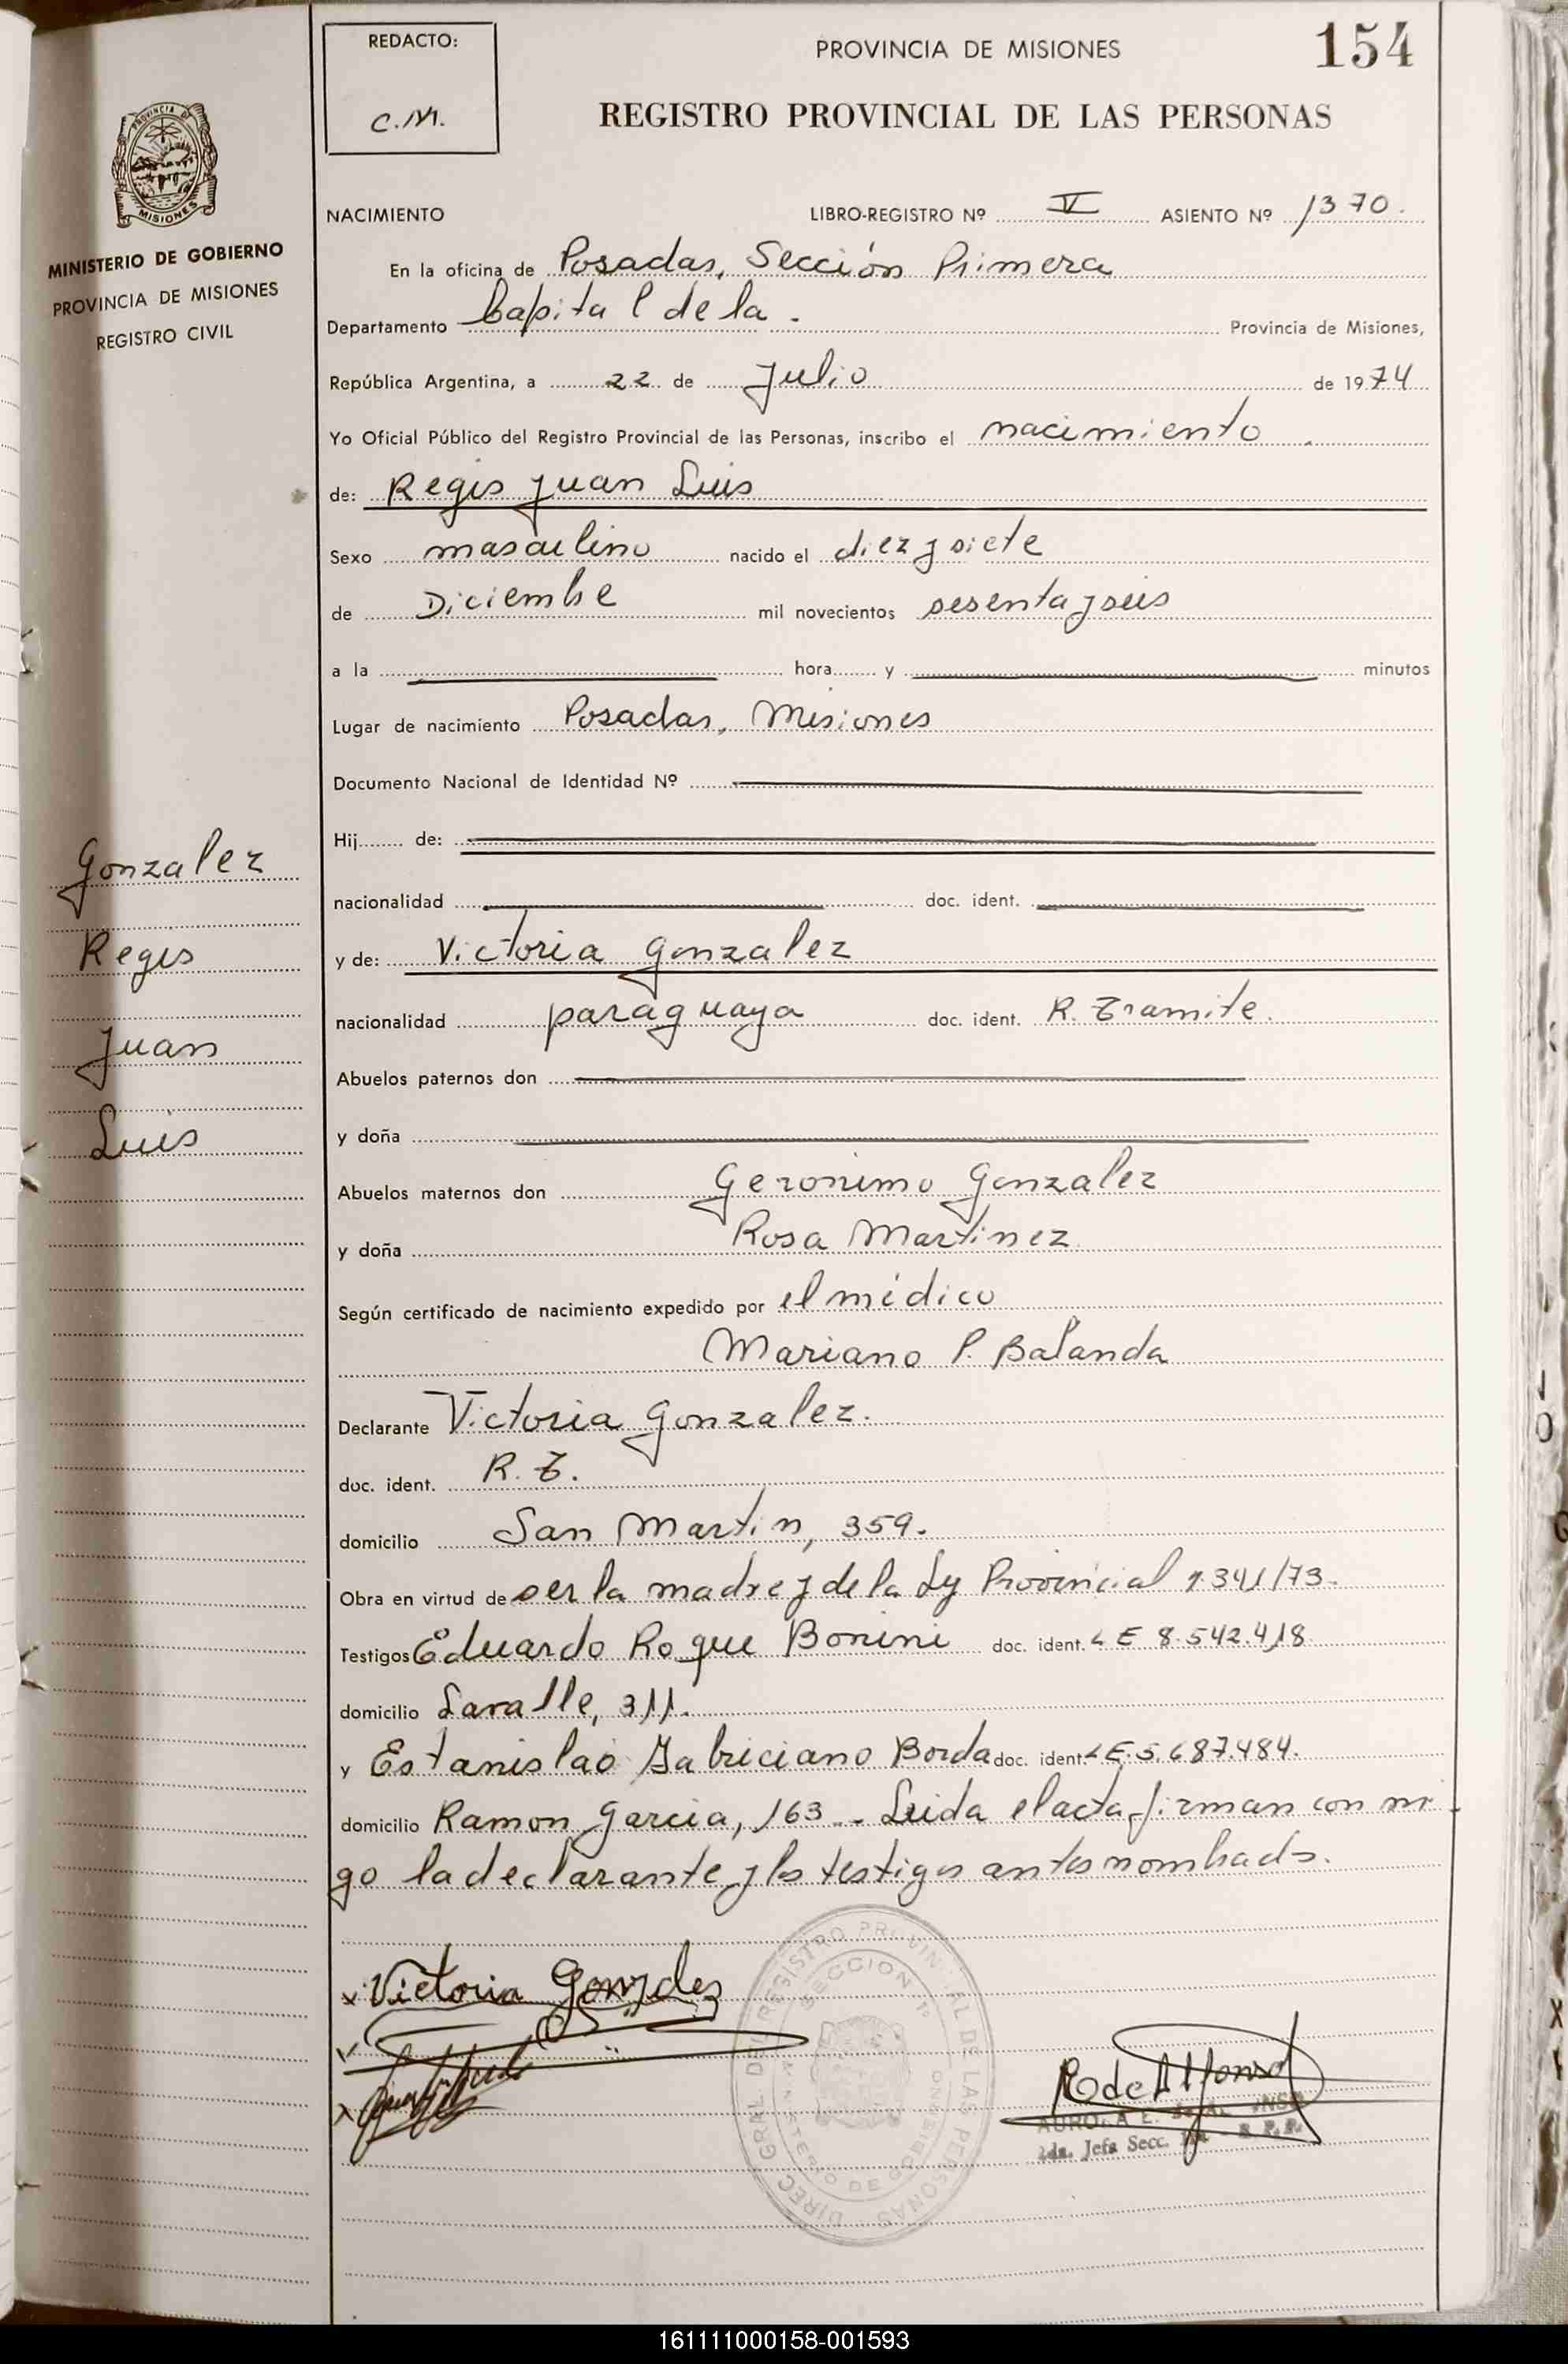 REDACTO:
C.M.
PROVINCIA DE MISIONES
154
REGISTRO PROVINCIAL DE LAS PERSONAS
PROVINCIA DE
MISIONES
MINISTERIO DE GOBIERNO
PROVINCIA DE MISIONES
REGISTRO CIVIL
NACIMIENTO LIBRO-REGISTRO Nº V ASIENTO Nº 1370.
En la oficina de Posadas, Sección Primera
Departamento Capital de la. Provincia de Misiones,
República Argentina, a 22 de Julio de 1974
Yo Oficial Público del Registro Provincial de las Personas, inscribo el nacimiento
de: Regis Juan Luis
Sexo masculino nacido el diez y siete
de Diciembre mil novecientos sesenta y seis
a la hora y minutos
Lugar de nacimiento Posadas, Misiones
Documento Nacional de Identidad Nº
Hij de:
nacionalidad doc. ident.
y de: Victoria Gonzalez
nacionalidad paraguaya doc. ident. R. Tramite.
Abuelos paternos don
y doña
Abuelos maternos don Geronimo Gonzalez
y doña Rosa Martinez
Según certificado de nacimiento expedido por el médico
Mariano P. Balanda
Declarante Victoria Gonzalez.
doc. ident. R. T.
domicilio San Martin, 359.
Obra en virtud de ser la madre y de la Ley Provincial 1.341/73.
Testigos Eduardo Roque Bonini doc. ident. LE 8.542.418
domicilio Lavalle, 311.
y Estanislao Fabriciano Borda doc. ident. LE. 5.687.484.
domicilio Ramon Garcia, 163.- Leida el acta firman con mi
go la declarante y los testigos antes nombrados.
Gonzalez
Regis
Juan
Luis
Victoria Gonzalez
DIREC. GRAL. DEL REGISTRO PROVINCIAL DE LAS PERSONAS
SECCION 1º
MINISTERIO DE GOBIERNO
R de Alfonso
AURORA E.
2da. Jefa Secc.
161111000158-001593